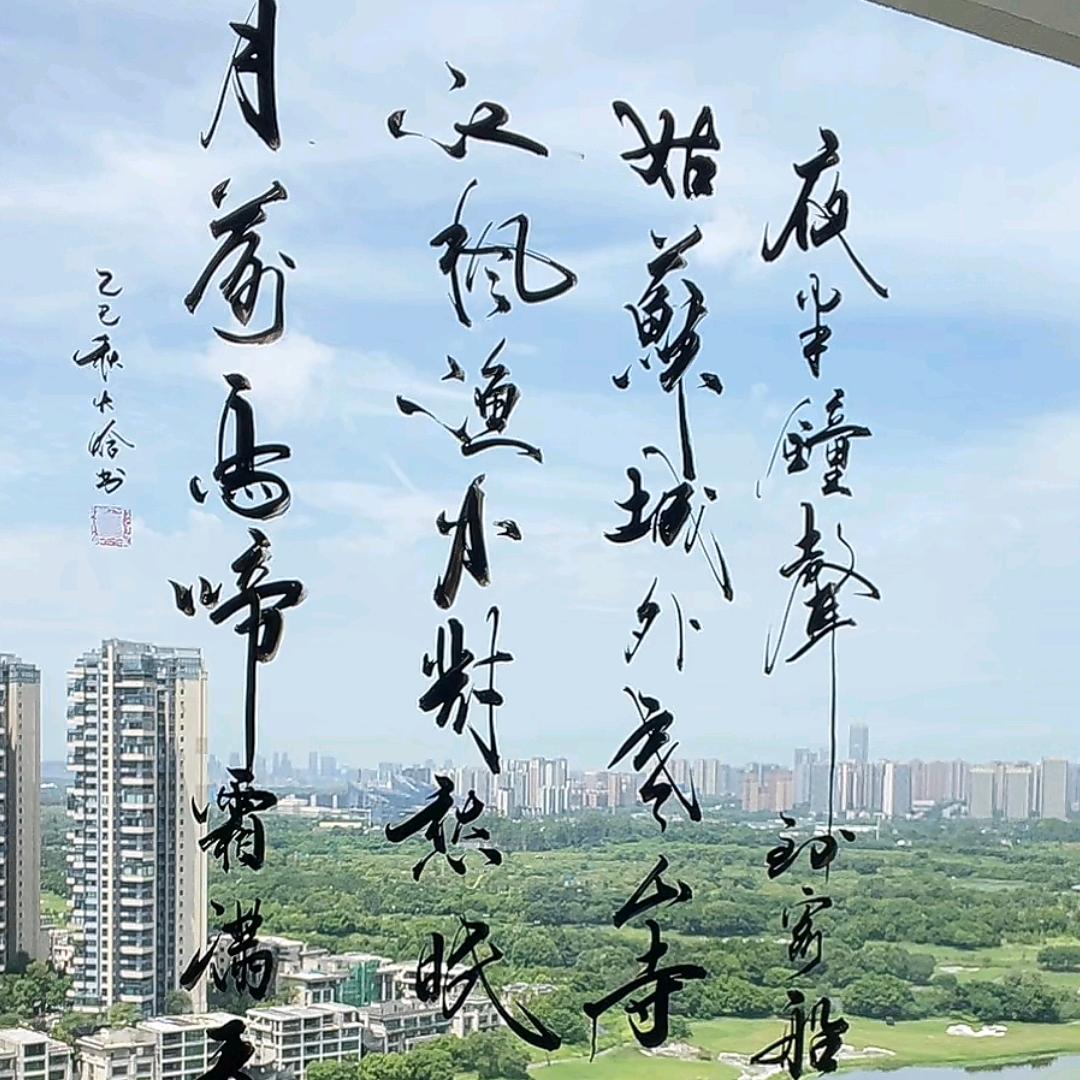 月落烏啼霜滿天
江楓漁火對愁眠
姑蘇城外寒山寺
夜半鐘聲到客船
乙巳秋大书